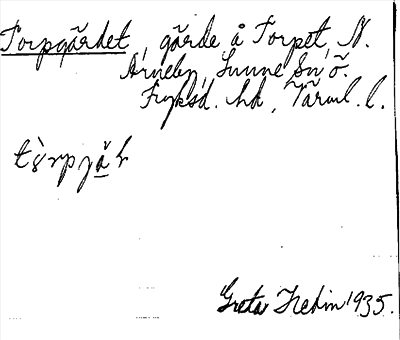 Torpgärdet, gärde å Torpet, N.
Årneby, Sunne Sn ö.
Fryksd. hd, Värml. l.
Greta Hedin 1935.